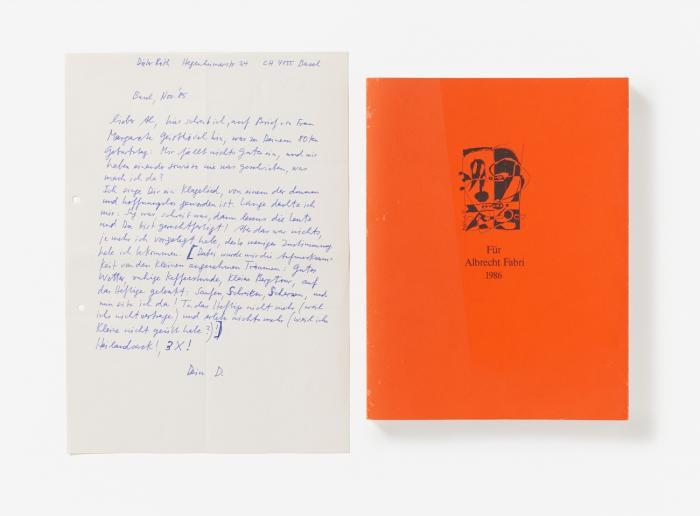 Dieter Roth Hegenheimerstr 24 CH 4055 Basel
Basel, Nov. '85
Lieber Al, hier schreib ich, auf Brief von Frau
Margarete hin, was zu Deinem 80ten
Geburtstag: Mir fällt nichts Gutes ein, und wir
haben einander sowieso nie was geschrieben, was
mach ich da?
Ich singe Dir ein Klagelied, von einem der dumm
und hoffnungslos geworden ist. Lange dachte ich
mir: Sag was, schreib was, dann lesens die Leute
und Du bist gerechtfertigt! Aber das war nichts,
je mehr ich vorgelegt habe, desto weniger Zustimmung
habe ich bekommen. [Dabei wurde mir die Aufmerksam-
keit von den kleinen angenehmen Träumen: Gutes
Wetter, ruhige Kaffeestunde, kleine Bergtour, auf
das Heftige gelenkt: Saufen, Schreien, Scheissen, und
nun sitz ich da! Tu das Heftige nicht mehr (weil
ichs nicht vertrage) und erlebe nichts mehr (weil ich
Kleine nicht geübt habe?)!]
Heilandsack!, 3X!
Dein D.
Für
Albrecht Fabri
1986